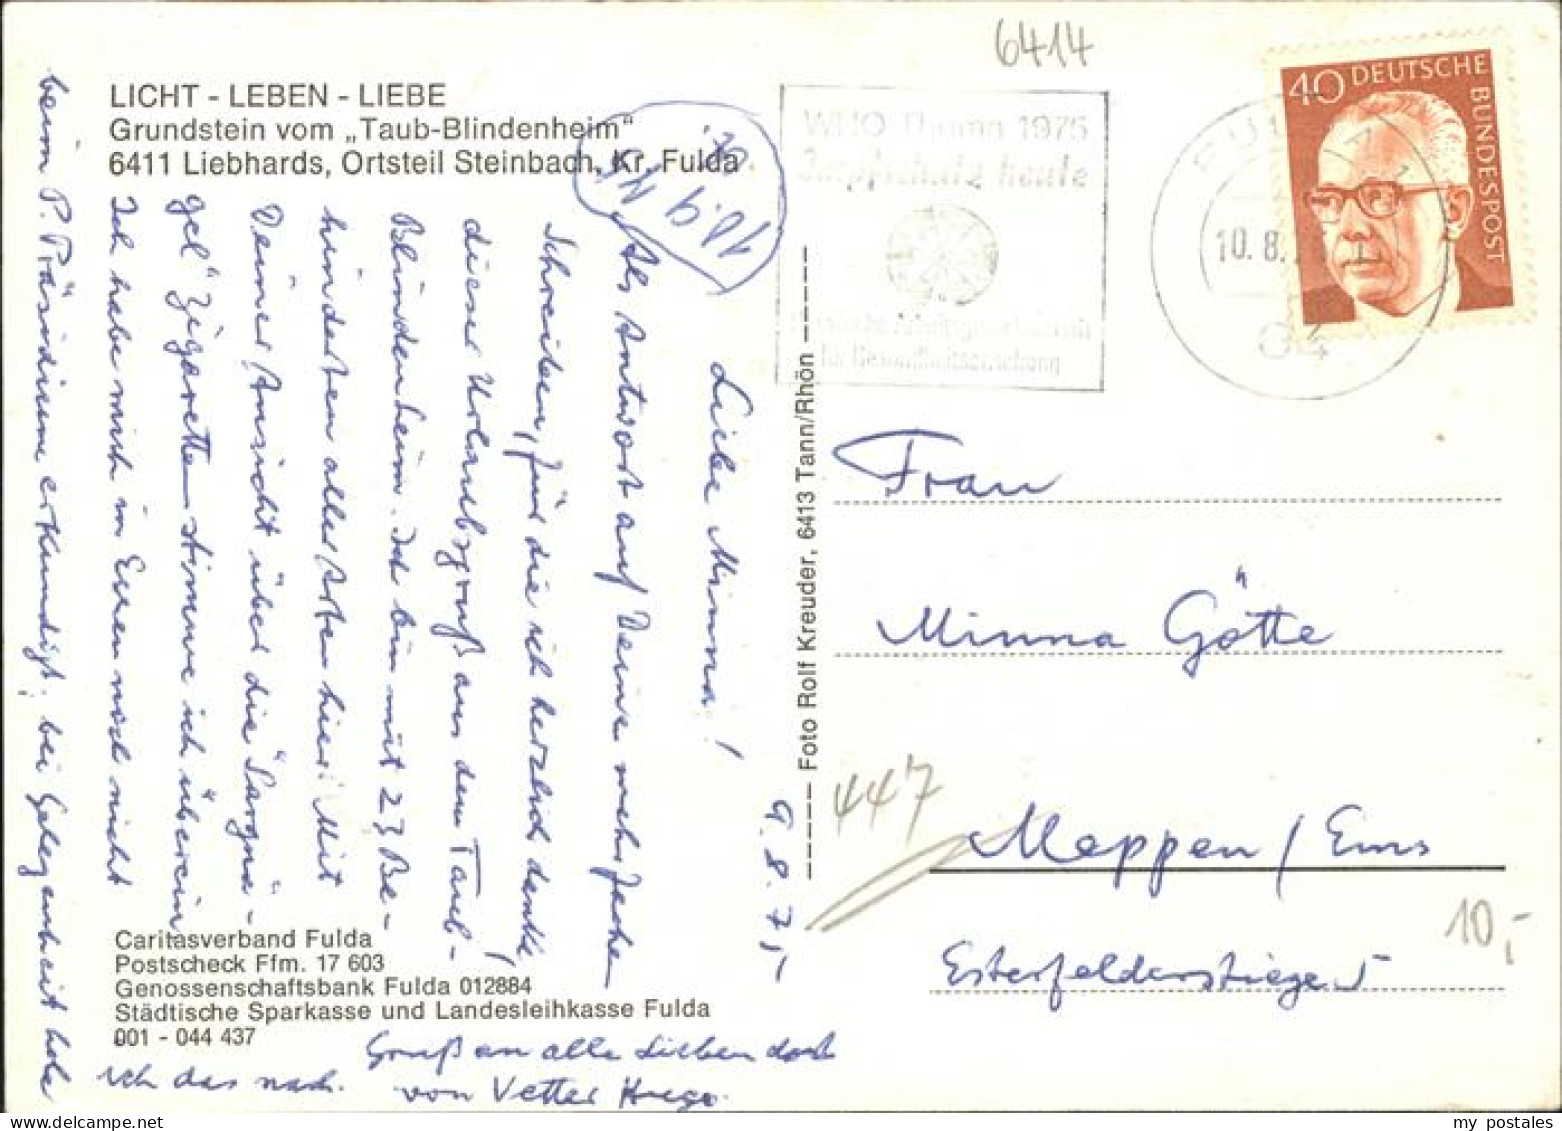 6414
LICHT - LEBEN - LIEBE
Grundstein vom „Taub-Blindenheim"
6411 Liebhards, Ortsteil Steinbach, Kr. Fulda
40 DEUTSCHE BUNDESPOST
WHO Thema 1975
Impfschutz heute
für Gesundheitserziehung
FULDA 1
10.8.
64
9.8.75
Liebe Minna!
Als Antwort auf Deine
Schreiben, für die ich herzlich danke,
dieser Urlaubsgruß aus dem Taub-
Blindenheim. Ich bin mit 23 Be-
hinderten aller Arten hier. Mit
Deiner Ansicht über die "Sargnä-
gel" Zigaretten stimme ich überein,
Ich habe mich in Euren noch nicht
beim P. Präsidium erkundigt, bei Gelegenheit hole
ich das nach.
Gruß an alle Lieben dort
von Vetter Hugo.
Foto Rolf Kreuder, 6413 Tann/Rhön
Frau
Minna Götte
447
Meppen / Ems
Esterfelderstiege 5
10,-
Caritasverband Fulda
Postscheck Ffm. 17 603
Genossenschaftsbank Fulda 012884
Städtische Sparkasse und Landesleihkasse Fulda
001 - 044 437
my postales